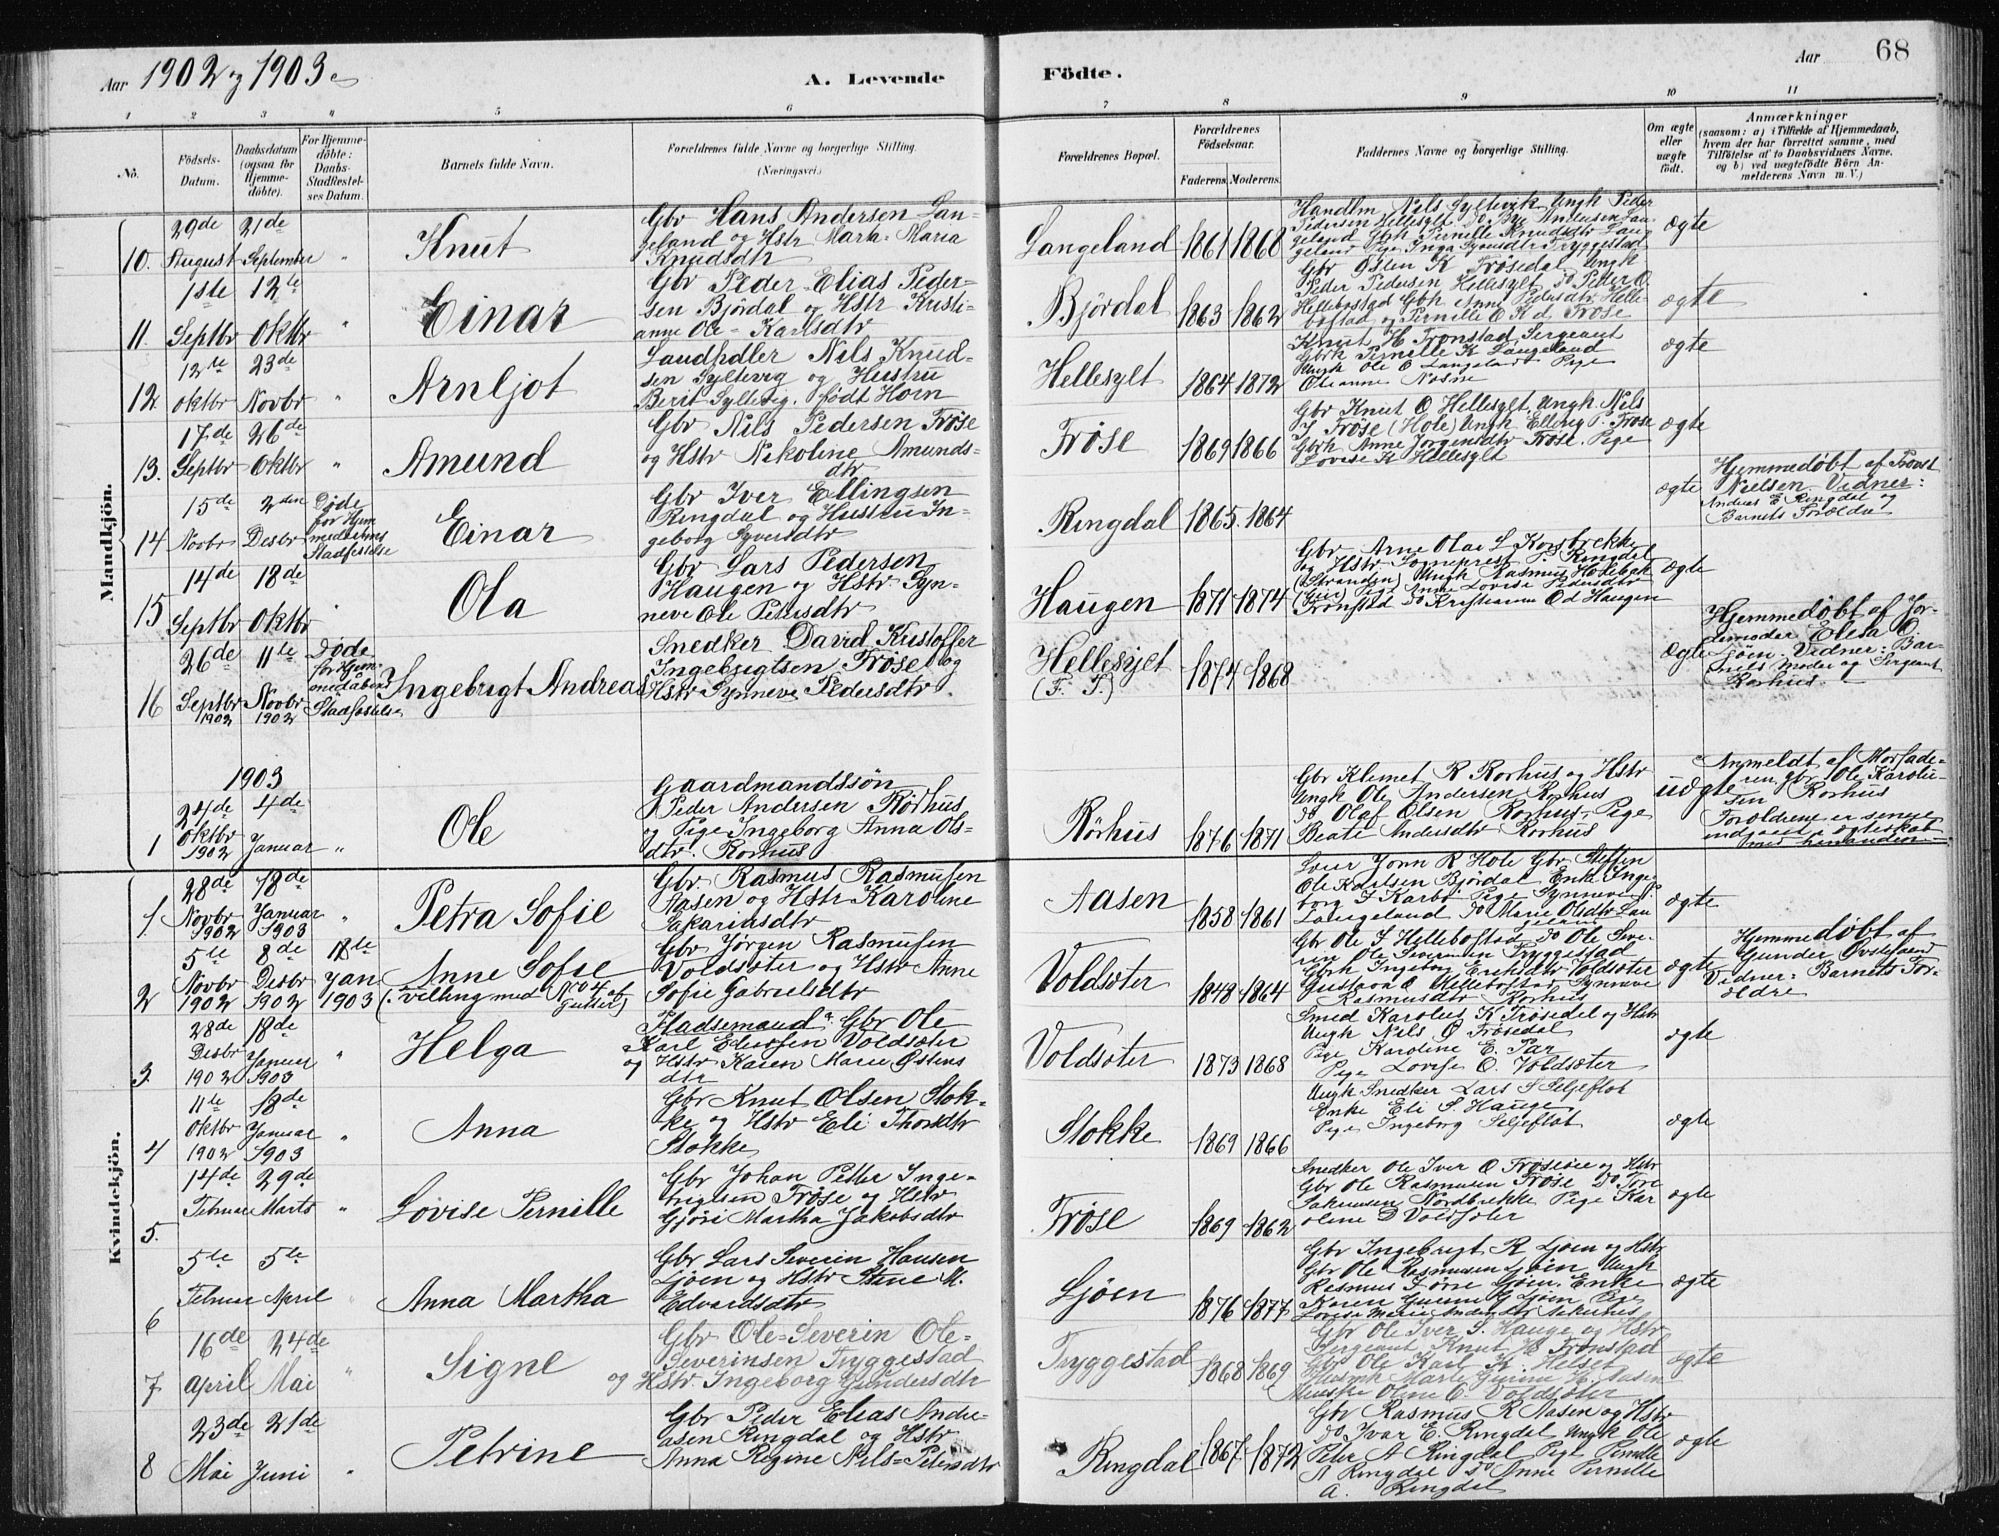 Aar 1902 og 1903
A. Levende
Födte.
Aar
68
1 2 3 4 5 6 7 8 9 10 11
No.
Födsels-
Datum.
Daabsdatum
(ogsaa for
Hjemme-
döbte).
For Hjemme-
döbte:
Daabs-
Stadfæstel-
ses Datum.
Barnets fulde Navn.
Forældrenes fulde Navne og borgerlige Stilling.
(Næringsvei.)
Forældrenes Bopæl.
Forældrenes
Födselsaar.
Faderens. Moderens.
Faddernes Navne og borgerlige Stilling.
Om ægte
eller
uægte
födt.
Anmærkninger
(saasom: a) i Tilfælde af Hjemmedaab,
hvem der har forrettet samme, med
Tilföielse af to Daabsvidners Navne.
og b) ved uægtefödte Börn An-
melderens Navn m. V.)
Mandkjön.
10. 29de August 21de September "
Knut
Gbr Hans Andersen Lan-
geland og Hstr Marta Maria
Knudsdtr
Langeland 1861 1868
Handlm Nils Syltevik Ungk Peder
Pedersen Hellesylt Do Bye Andersen Lan-
geland Gbrk Pernille Knudsdtr Lang
geland Pige Inga Syvertsdtr Tryggestad
ægte
11. 1ste Septbr 12te Oktbr "
Einar
Gbr Peder Elias Peder-
sen Björdal og Hstr Kristi-
anne Ole-Karlsdtr
Björdal 1863 1862
Gbr Østen K Frøsedal Ungk
Peder Pedersen Hellesylt Do Peder O
Hellebostad Gbrk Anne Pedersdtr Helle-
bostad og Pernille O K d. Frøse
ægte
12. 12te Oktbr 23de Novbr
Arnljot
Landhdler Nils Knud-
sen Syltevig og Hustru
Berit Syltevig, født Horn
Hellesylt 1864 1872
Knut H Tronstad Sergeant
Gbrk Pernille K Langeland
Ungk Ole O Langeland Pige
Oleanne
ægte
13. 17de Septbr 26de Oktbr "
Amund
Gbr Nils Pedersen Frøse
og Hstr Nikoline Amunds-
dtr
Frøse 1869 1866
Gbr Knut O Hellesylt Ungk Nils
I Frøse (Hole) Ungk Elling P. Frøse
Gbrk Anne Jørgensdtr Frøse. Pige
Lovise K Hellesylt
ægte
14 15de Novbr 2den Desbr Døde
før Hjem
medaabens
Stadfæstelse
Einar
Gbr Iver Ellingsen
Ringdal og Hustru In-
geborg Syversdtr
Ringdal 1865 1864
ægte
Hjemmedøbt af Provst
Nielsen. Vidner:
Andreas E Ringdal og
Barnets Forældre
15 14de Septbr 18de Oktbr "
Ola
Gbr Lars Pedersen
Haugen og Hstr Syn-
neve Ole Petersdtr
Haugen 1871 1874
Gbr Arne Olai L Korsbrekke
og Hstr Sogneprest P. Ringdal
(Stranden) Ungk Rasmus Holebak
Pige Anne Lovise Pedersdtr
Tronstad Do Kristianne O d Haugen
ægte
16 26de Septbr 1902 11te Novbr 1902 Døde
før Hjem-
medaabens
Stadfæstelse
Ingebrigt Andreas
Snedker David Kristoffer
Ingebrigtsen Frøse og
Hstr Synneve Pedersdtr.
Hellesylt
(F. P.) 1874 1868
ægte
Hjemmedøbt af Jor-
demoder Elesa O
Ljøen. Vidner: Bar-
nets Moder og Sergeant
Rørhus.
1903
1 24de Oktbr 1902 4de Januar "
Ole
Gaardmandssøn
Peder Andersen Rørhus
og Pige Ingeborg Anna Ols-
dtr. Rorhus
Rörhus 1876 1871
Gbr Klemet R Rorhus og Hstr
Ungk Ole Andersen Rorhus
Do Olaf Olsen Rorhus, Pige
Beate Andersdtr Rorhus
uægte
Anmeldt af Morfade-
ren, gbr Ole Karolu-
sen Rorhus
Forældrene er senere
indgaaet i ægteskab
med hinanden
Kvindekjön.
1 28de Novbr 1902 18de Januar 1903 "
Petra Sofie
Gbr. Rasmus Rasmusen
Aasen og Hstr Karoline
Sakariasdtr
Aasen 1858 1861
Leier Jonn R Hole Gbr Steffen
Ole Karlsen Bjørdal Enke Inge-
borg I Karbø Pige Synneve P
Langeland Do Marie Olsdtr Lan
geland
ægte
2 5te Novbr 1902 8de Desbr 1902 18te Jan 1903
Anne Sofie
(tvilling med No 4 af
Gutter)
Gbr Jörgen Rasmusen
Voldsæter og Hstr Anne
Sofie Gabrielsdtr
Voldsæter 1848 1864
Gbr Ole I Hellebostad Do Ole Seve-
rin Ole Severinsen Tryggestad
Gbrk Ingeborg Eriksdtr Voldsæter
Gustava O Hellebostad Synneve
Rasmusdtr Rorhus
ægte
Hjemmedøbt af
Gunder Øvrelseend
Vidner: Barnets For-
ældre
3. 28de Desbr 1902 18de Januar 1903 "
Helga
Pladsemand a. Gbr Ole
Karl Eliasen Voldsæter
og Hstr Karen Marie Østens
dtr
Voldsæter 1873 1868
Smed Karolus K Frøsedal og Hstr
Ungk Nils O Frøsedal
Pige Karoline E. Par
Pige Lovise O. Voldsæter
ægte
4 11te Oktbr 1902 18de Januar 1903 "
Anna
Gbr Knut Olsen Stok-
ke og Hstr Eli Thorsdtr
Stokke
Stokke 1869 1866
Ungk Snedker Lars S Seljeflot
Enke Eli S. Hauge
Pige Ingeborg Seljeflot
ægte
5. 14de Februar 29de Marts "
Lovise Pernille
Gbr Johan Petter Inge-
brigtsen Frøse og Hstr
Gjøri Martha Jakobsdtr
Frøse 1869 1862
Snedker Ole Iver O Frøseøie og Hstr
Gbr Ole Rasmusen Frøse Do Tore
Sakariasen Nordbrekke Pige Kar
oline D Voldsæter
ægte
6 5te Februar 5te April
Anna Martha
Gbr Lars Severin Hansen
Ljøen og Hstr Stine M.
Edvardsdtr
Ljøen 1876 1877
Gbr Ingebrigt R Ljøen og Hstr
Gbr Ole Rasmusen Ljøen Ungk
Rasmus I Ljøen. Enke
Karen G Ljøen Pige
Lovise Marie Andersdtr
ægte
7 16de April 24de Mai "
Signe
Gbr Ole-Severin Ole-
Severinsen Tryggestad
og Hstr. Ingeborg Gundersdtr
Tryggestad 1868 1869
Gbr Ole Iver S. Hauge og Hstr
Sergeant Knut H Tronstad
Gbr Ole Karl K. Helset
Marte Gurine H. Aasen
Oline O. Voldsæter
ægte
8 23de Mai 21de Juni "
Petrine
Gbr Peder Elias Andre-
asen Ringdal og Hstr
Anna Regine Nils-Petersdtr
Ringdal 1867 1872
Gbr Rasmus R Aasen og Hstr
Do Ivar E. Ringdal Ungk Ole
Peter A Ringdal Pige Pernille
A Ringdal Do Anne Pernille
A. Ringdal
ægte